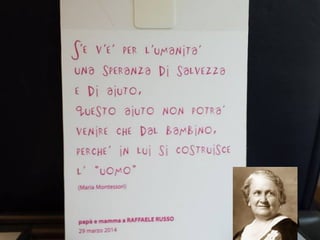 S'E V'E' PER L'UMANITA'
UNA SPERANZA DI SALVEZZA
E DI AIUTO,
QUESTO AIUTO NON POTRA'
VENIRE CHE DAL BAMBINO,
PERCHE' IN LUI SI COSTRUISCE
L' "UOMO"
(Maria Montessori)
papà e mamma a RAFFAELE RUSSO
29 marzo 2014